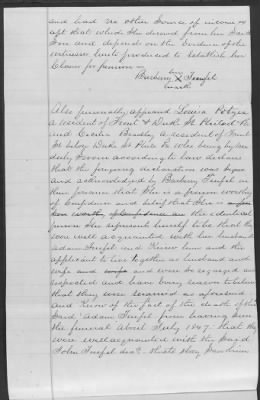 and had no other Source of income or
aft that which She derived from her Said
Son and depends on the evidence of the
witnesses hereto produced to establish her
Claim for pension —
her
Barbary X Teufel
mark
Also personally appeared Louisa Potzer
a resident of Front & Duth St Philad Pa
and Cecilia Bradley a resident of Front
St below Duth St Phila Pa who being by me
duly Sworn according to law declare
that the foregoing declaration was Sign
and acknowledged by Barbary Teufel in
their presence that She is a person worthy
of Confidence and belief that She is
son worthy of Confidence an the identical
person She represents herself to be that they
were well acquainted with her husband
Adam Teufel and Knew him and the
applicant to live together as husband and
wife and wife and were So regarded and
respected and have every reason to believe
that they were married as aforesaid
and Know of the fact of the death of the
Said Adam Teufel from having Seen
the funeral about July 1847. that they
were well acquainted with the Said
John Teufel decd. that they Saw him